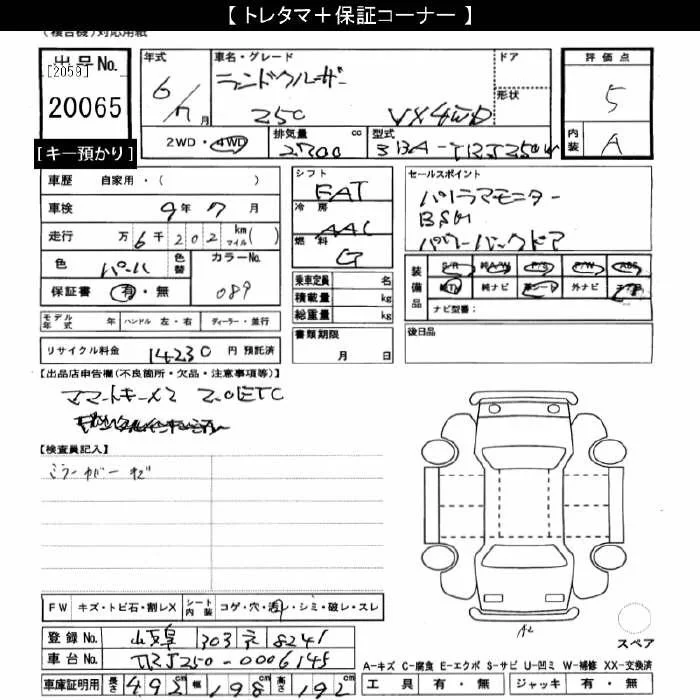 【 トレタマ＋保証コーナー 】
出品No.
[2059]
20065
[キー預かり]
年式
6/7月
車名・グレード
ランドクルーザー
250 VX4WD
ドア
形状
評価点
5
内装
A
2WD・4WD
排気量 cc
2700
型式
3BA-TRJ250W
車歴 自家用・( )
車検 9年7月
走行 万6千202km マイル( )
色 パール
色替
カラーNo.
089
保証書 有・無
シフト
FAT
冷房
AAC
燃料
G
乗車定員 名
積載量 kg
総重量 kg
セールスポイント
パノラマモニター
BSM
パワーバックドア
装備品
S/R 純A/W P/S P/W ABS
純TV 純ナビ 革シート 外ナビ エアB
ナビ型番：
モデル年式 年 ハンドル 左・右 ディーラー・並行
書類期限
月 日
後日品
リサイクル料金 14230 円 預託済
【出品店申告欄(不良箇所・欠品・注意事項等)】
スマートキー×2 2.0ETC
【検査員記入】
ミラーカバーキズ
FW キズ・トビ石・割レX シート内装 コゲ・穴・汚レ・シミ・破レ・スレ
登録No. 岐阜 303 そ 8241
車台No. TRJ250-0006145
車庫証明用 長さ 492cm 幅 198cm 高さ 192cm
A2
スペア
A-キズ C-腐食 E-エクボ S-サビ U-凹ミ W-補修 XX-交換済
工具 有・無 ジャッキ 有・無